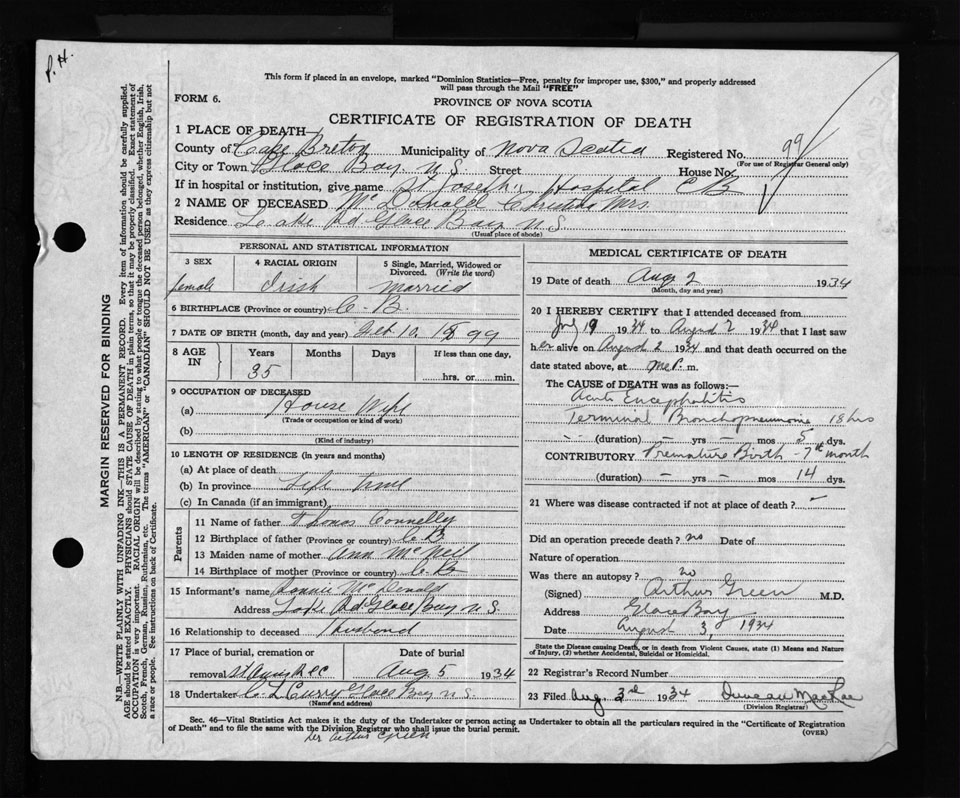 P.H.
This form if placed in an envelope, marked "Dominion Statistics—Free, penalty for improper use, $300," and properly addressed
will pass through the Mail "FREE"
FORM 6.
PROVINCE OF NOVA SCOTIA
CERTIFICATE OF REGISTRATION OF DEATH
1 PLACE OF DEATH
County of Cape Breton Municipality of Nova Scotia Registered No. 99
(For use of Registrar General only)
City or Town Glace Bay N.S. Street House No.
If in hospital or institution, give name St Joseph's Hospital CB
2 NAME OF DECEASED McDonald Christina Mrs.
Residence Lake Rd Glace Bay N.S.
(Usual place of abode)
PERSONAL AND STATISTICAL INFORMATION
3 SEX 4 RACIAL ORIGIN 5 Single, Married, Widowed or Divorced. (Write the word)
female Irish Married
6 BIRTHPLACE (Province or country) C. B.
7 DATE OF BIRTH (month, day and year) 10, 1899
8 AGE IN Years Months Days If less than one day,
35 hrs. or min.
9 OCCUPATION OF DECEASED
(a) House Wife
(Trade or occupation or kind of work)
(b)
(Kind of industry)
10 LENGTH OF RESIDENCE (in years and months)
(a) At place of death
(b) In province Life time
(c) In Canada (if an immigrant)
Parents
11 Name of father Thomas Connelly
12 Birthplace of father (Province or country) C B
13 Maiden name of mother Ann McNeil
14 Birthplace of mother (Province or country) C. B
15 Informant's name Ronnie McDonald
Address Lake Rd Glace Bay N.S
16 Relationship to deceased Husband
17 Place of burial, cremation or removal Date of burial
St Annes Aug 5 1934
18 Undertaker C. L Curry Glace Bay N.S.
(Name and address)
MEDICAL CERTIFICATE OF DEATH
19 Date of death Aug 2 1934
(Month, day and year)
20 I HEREBY CERTIFY that I attended deceased from
July 19 1934 to August 2 1934 that I last saw
her alive on August 2 1934 and that death occurred on the
date stated above, at P. m.
The CAUSE of DEATH was as follows:—
Acute Encephalitis
Terminal Bronchopneumonia 18 hrs
(duration) yrs mos 5 dys.
CONTRIBUTORY Premature Birth - 7th month
(duration) yrs mos 14 dys.
21 Where was disease contracted if not at place of death? -
Did an operation precede death? no Date of
Nature of operation
Was there an autopsy? no
(Signed) Arthur Green M.D.
Address Glace Bay
Date August 3, 1934
State the Disease causing Death, or in death from Violent Causes, state (1) Means and Nature
of Injury, (2) whether Accidental, Suicidal or Homicidal.
22 Registrar's Record Number
23 Filed Aug. 3rd 1934 Duncan MacRae
(Division Registrar)
Sec. 46—Vital Statistics Act makes it the duty of the Undertaker or person acting as Undertaker to obtain all the particulars required in the "Certificate of Registration
of Death" and to file the same with the Division Registrar who shall issue the burial permit.
(OVER)
Dr Arthur Green
MARGIN RESERVED FOR BINDING
N.B.—WRITE PLAINLY WITH UNFADING INK—THIS IS A PERMANENT RECORD. Every item of information should be carefully supplied.
AGE should be stated EXACTLY. PHYSICIANS should STATE CAUSE OF DEATH in plain terms, so that it may be properly classified. Exact statement of
OCCUPATION is very important. RACIAL ORIGIN will be described by stating to what people or tongue the deceased person belonged, whether English, Irish,
Scotch, French, German, Russian, Ruthenian, etc. The terms "AMERICAN" or "CANADIAN" SHOULD NOT BE USED as they express citizenship but not
a race or people. See instructions on back of Certificate.